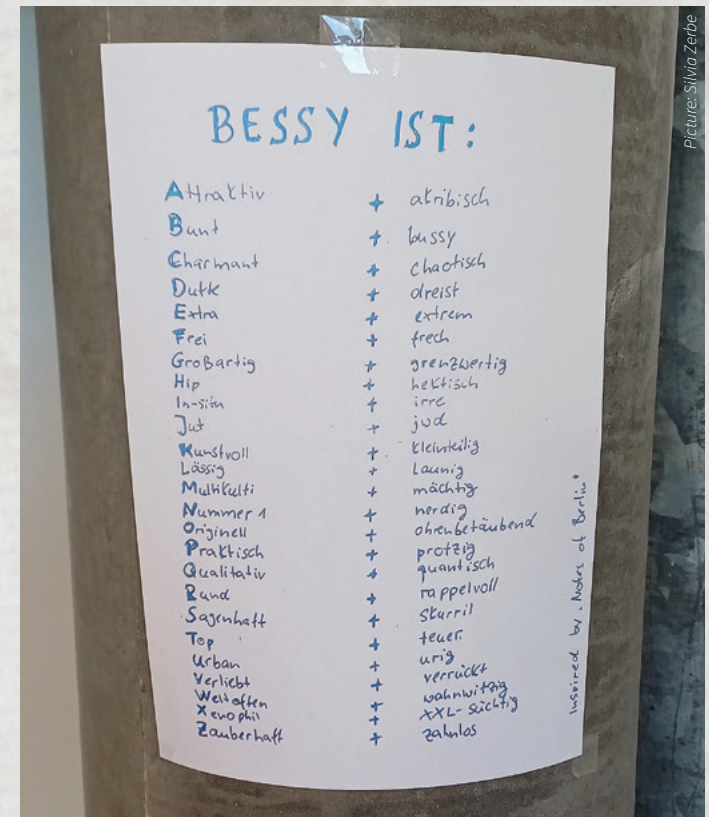 Picture: Silvia Zerbe
BESSY IST:
Attraktiv + akribisch
Bunt + bussy
Charmant + chaotisch
Dufte + dreist
Extra + extrem
Frei + frech
Großartig + grenzwertig
Hip + hektisch
In-situ + irre
Jut + jwd
Kunstvoll + kleinteilig
Lässig + launig
Multikulti + mächtig
Nummer 1 + nerdig
Originell + ohrenbetäubend
Praktisch + protzig
Qualitativ + quantisch
Rund + rappelvoll
Sagenhaft + skurril
Top + teuer
Urban + urig
Verliebt + verrückt
Weltoffen + wahnwitzig
Xenophil + XXL-süchtig
Zauberhaft + zahnlos
Inspired by „Notes of Berlin"